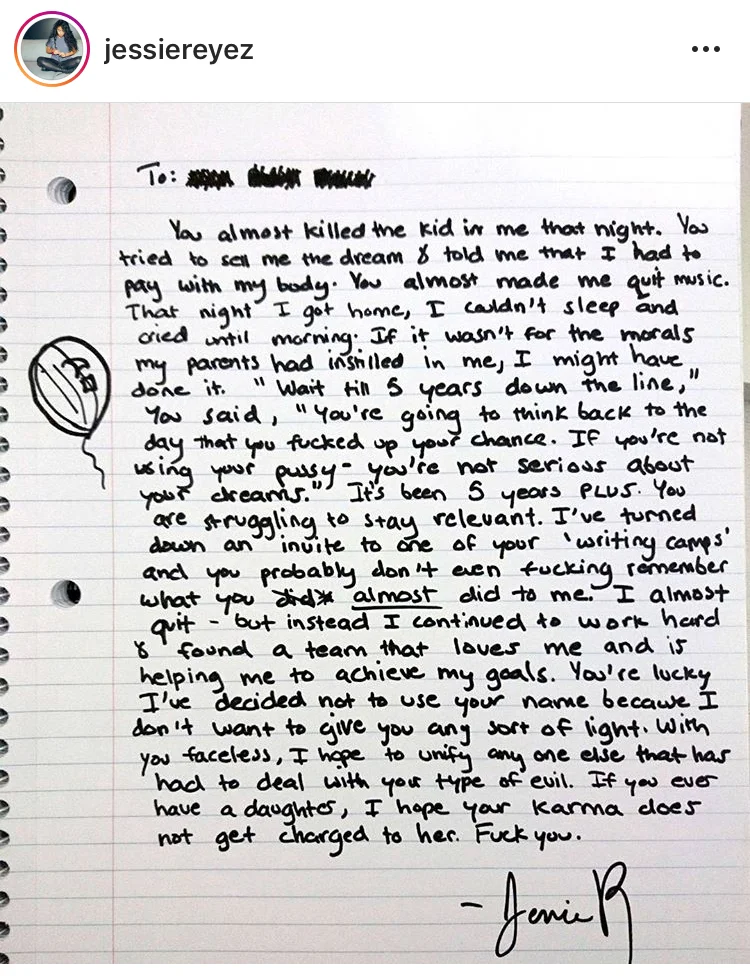 jessiereyez
To:
You almost killed the kid in me that night. You
tried to sell me the dream & told me that I had to
pay with my body. You almost made me quit music.
That night I got home, I couldn't sleep and
cried until morning. If it wasn't for the morals
my parents had instilled in me, I might have
done it. "Wait till 5 years down the line,"
You said, "You're going to think back to the
day that you fucked up your chance. If you're not
using your pussy - you're not serious about
your dreams." It's been 5 years PLUS. You
are struggling to stay relevant. I've turned
down an invite to one of your 'writing camps'
and you probably don't even fucking remember
what you did* almost did to me. I almost
quit - but instead I continued to work hard
& found a team that loves me and is
helping me to achieve my goals. You're lucky
I've decided not to use your name because I
don't want to give you any sort of light. With
you faceless, I hope to unify any one else that has
had to deal with your type of evil. If you ever
have a daughter, I hope your karma does
not get charged to her. Fuck you.
- Jessie R